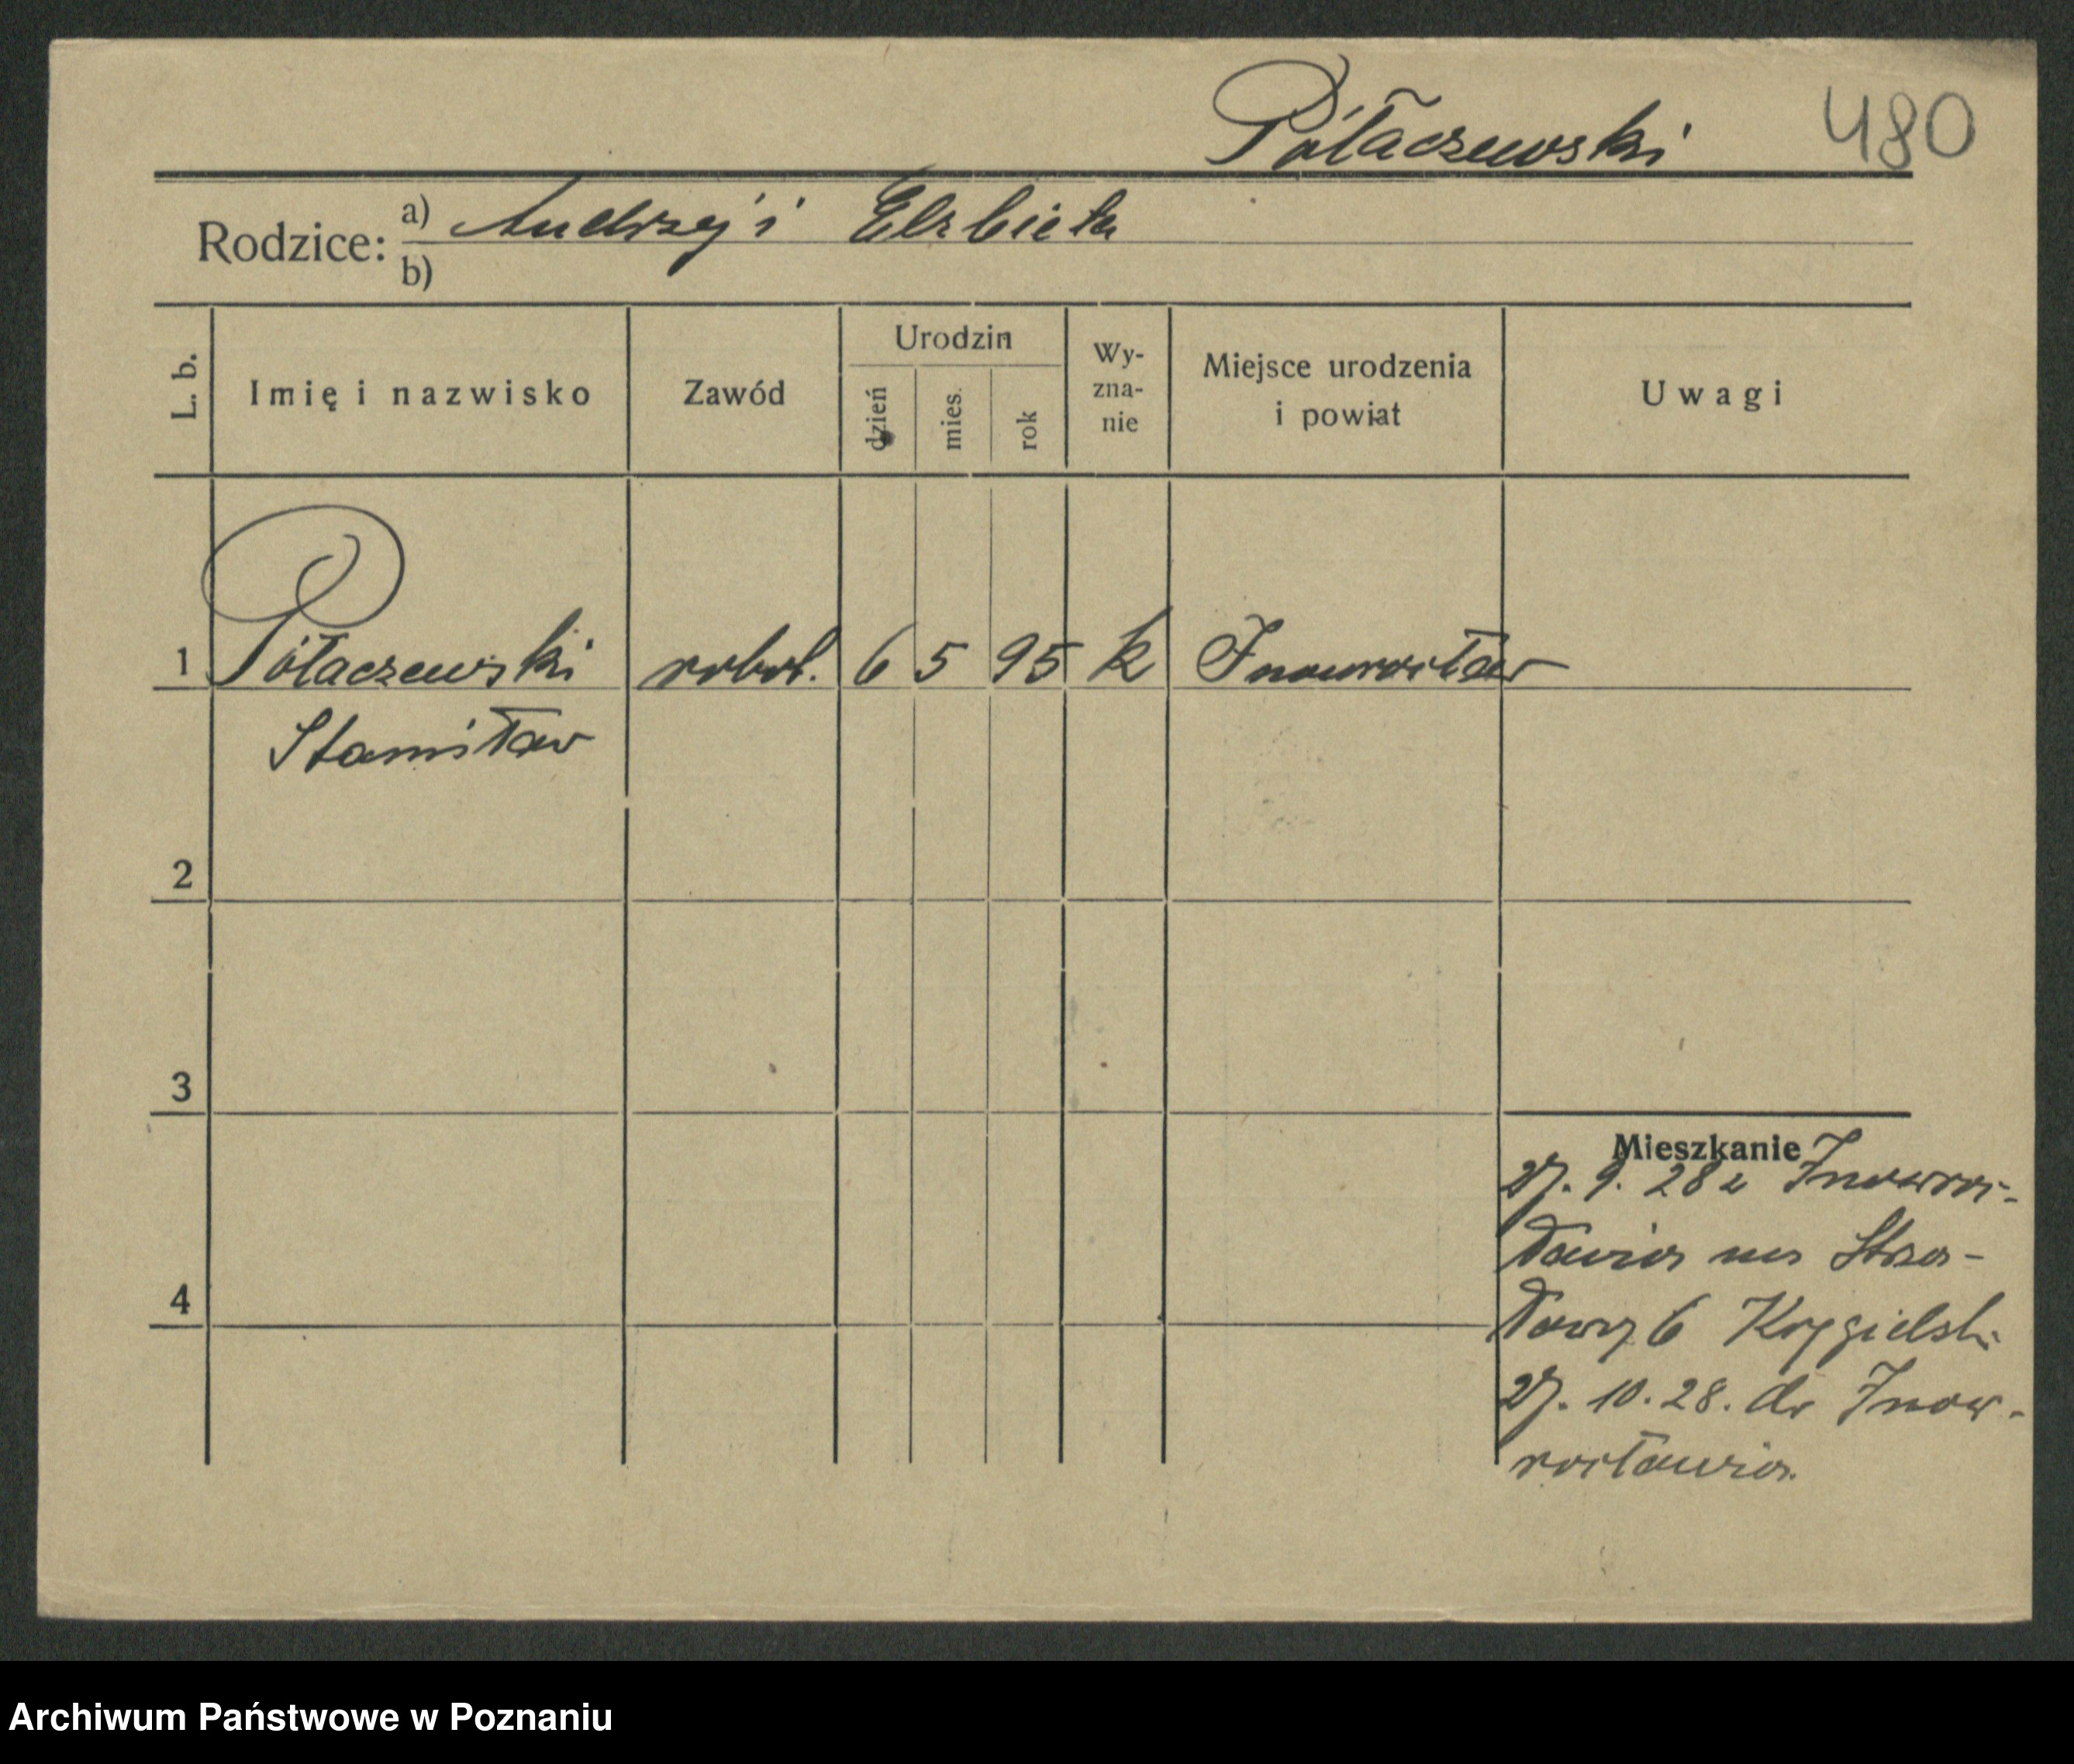 Półaczewski 480
Rodzice: a) Andrzej i Elzbieta
b)
L. b. Imię i nazwisko Zawód Urodzin dzień mies. rok Wy-zna-nie Miejsce urodzenia i powiat Uwagi
1 Półaczewski robot. 6 5 95 k Inowrocław
Stanisław
2
3
4
Mieszkanie
27. 9. 28 z Inowroc-
ławia na Strza-
łowy 6
27. 10. 28. do Inow-
rocławia.
Archiwum Państwowe w Poznaniu